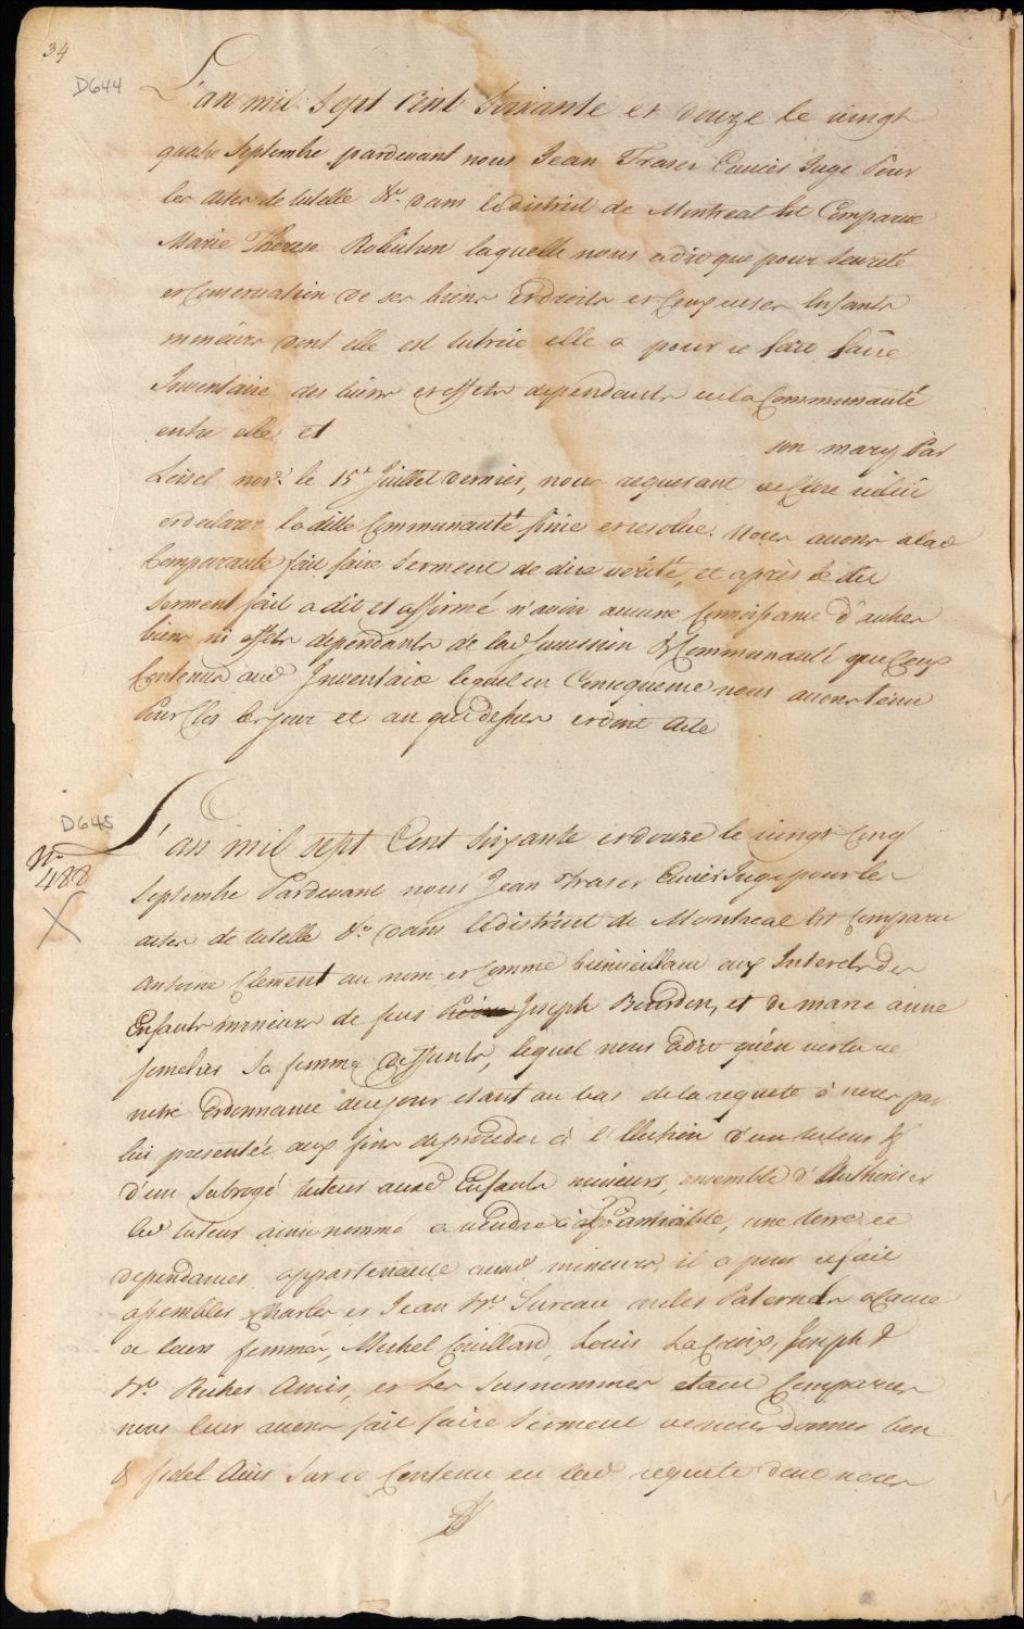 34
D644
L'an mil Sept Cent Soixante et douze le vingt
quatre Septembre pardevant nous Jean Fraser Ecuier Juge Pour
les actes de tutelle &c. dans le district de Montreal Est Comparue
Marie Therese Robiohun laquelle nous a dit que pour Seureté
et Conservation de ses biens et droits et Ceux de ses Enfants
mineurs dont elle est tutrice elle a pour ce fait faire
Inventaire des biens et effets dependants de la Communauté
entre elle et son mary Par
Loisel notre. le 15e Juillet dernier, nous requerant de Clore icelui
et declarer la ditte Communauté finie et resolue. Nous avons a lad
Comparante fait faire Serment de dire verité, et après le dit
Serment fait a dit et affirmé n'avoir aucune Connoissance d'autres
biens ni effets dependants de lad Succession & Communauté que Ceux
Contenus aud Inventaire lequel en Consequence nous avons tenu
Pour Clos les jour et an que dessus et dont acte
D645
No.
488
L'an mil sept Cent Soixante et douze le vingt Cinq
Septembre Pardevant nous Jean Fraser Ecuier Juge pour les
actes de tutelle &c dans le district de Montreal Est Comparu
Antoine Clement au nom et Comme bienveillant aux Interets des
Enfants mineurs de feus Joseph Bourdon, et de marie anne
femelier Sa femme Deffunts, lequel nous a dit qu'en vertu de
notre Ordonnance de ce jour etant au bas de la requete à nous par
lui presentée aux fins de proceder à l'Election d'un tuteur &
d'un Subrogé tuteur auxd Enfants mineurs, ensemble d'Authoriser
led tuteur ainsi nommé a vendre à l'amiable, une terre et
dependances appartenante auxd mineurs, il a pour ce fait
assembler Charles et Jean Bte Sureau oncles Paternels a Cause
de leurs femmes, Michel Couillard, Louis LaCroix, Joseph &
Bte Richer Amis, et les Susnommes etant Comparus
nous leur avons fait faire Serment de nous donner bon
& fidel Avis Sur le Contenu en lad requete dont nous